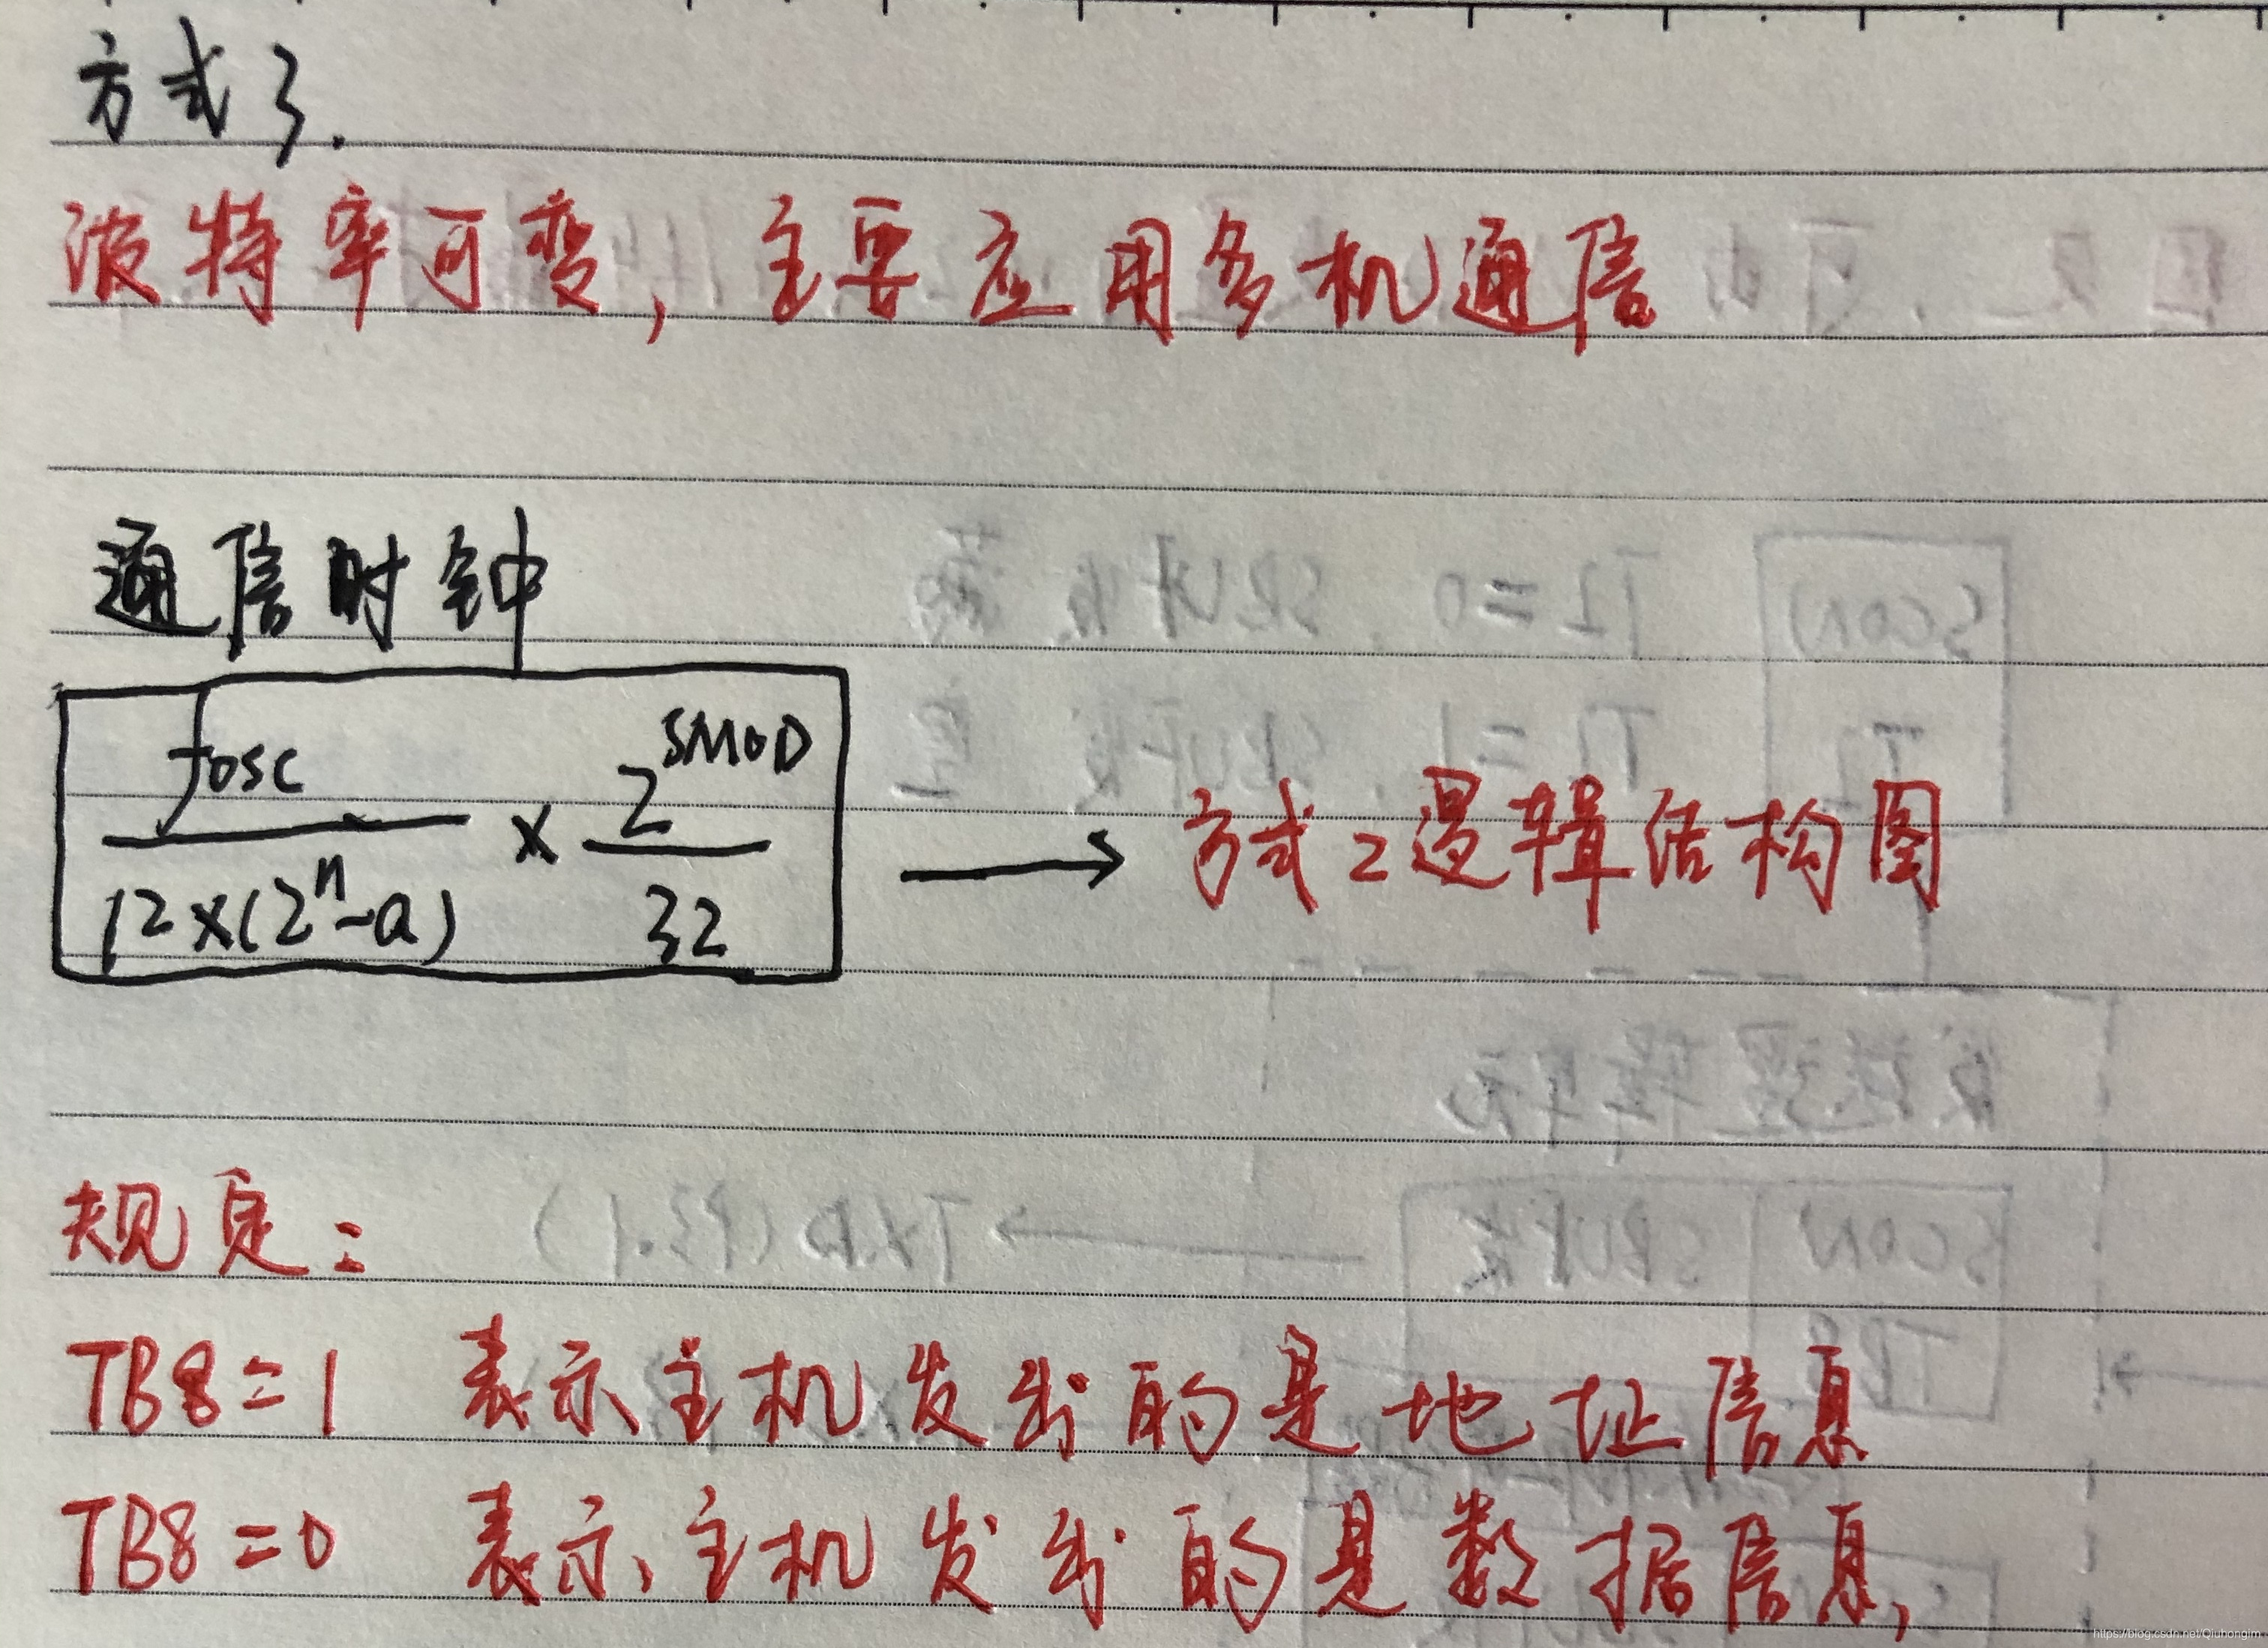 方式3.
波特率可变,主要应用多机通信
通信时钟
fosc / 12×(2^n-a) × 2^SMOD / 32 → 方式2逻辑结构图
规定:
TB8=1 表示主机发出的是地址信息
TB8=0 表示主机发出的是数据信息,
https://blog.csdn.net/Qiuhongim